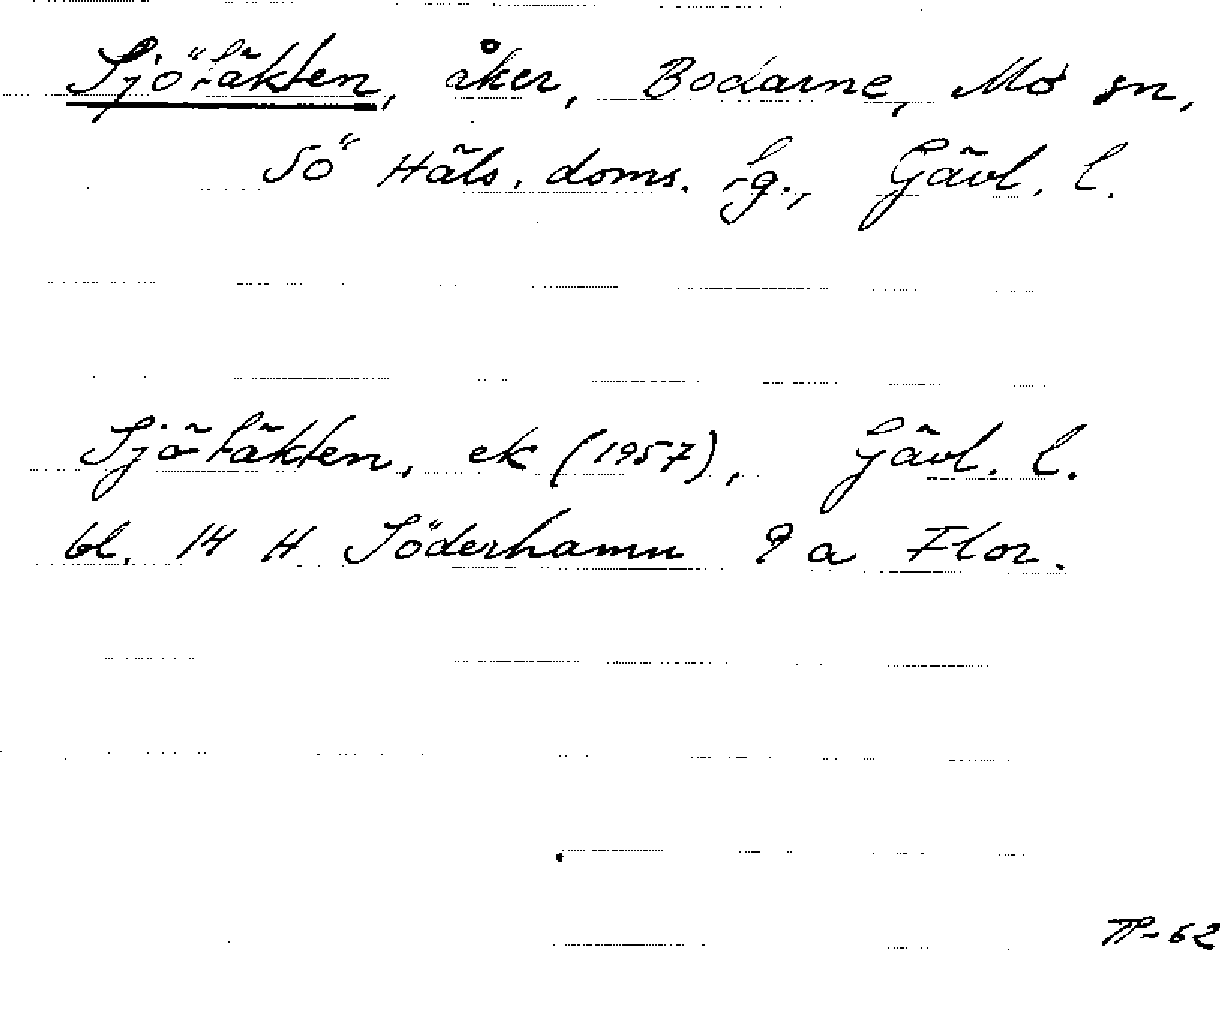 Sjötäkten, åker, Bodarne, Mo sn,
Sö Häls. doms. fg., Gävl. l.
Sjötäkten, ek (1957), Gävl. l.
bl. 14 H Söderhamn 9 a Flor.
TP-62